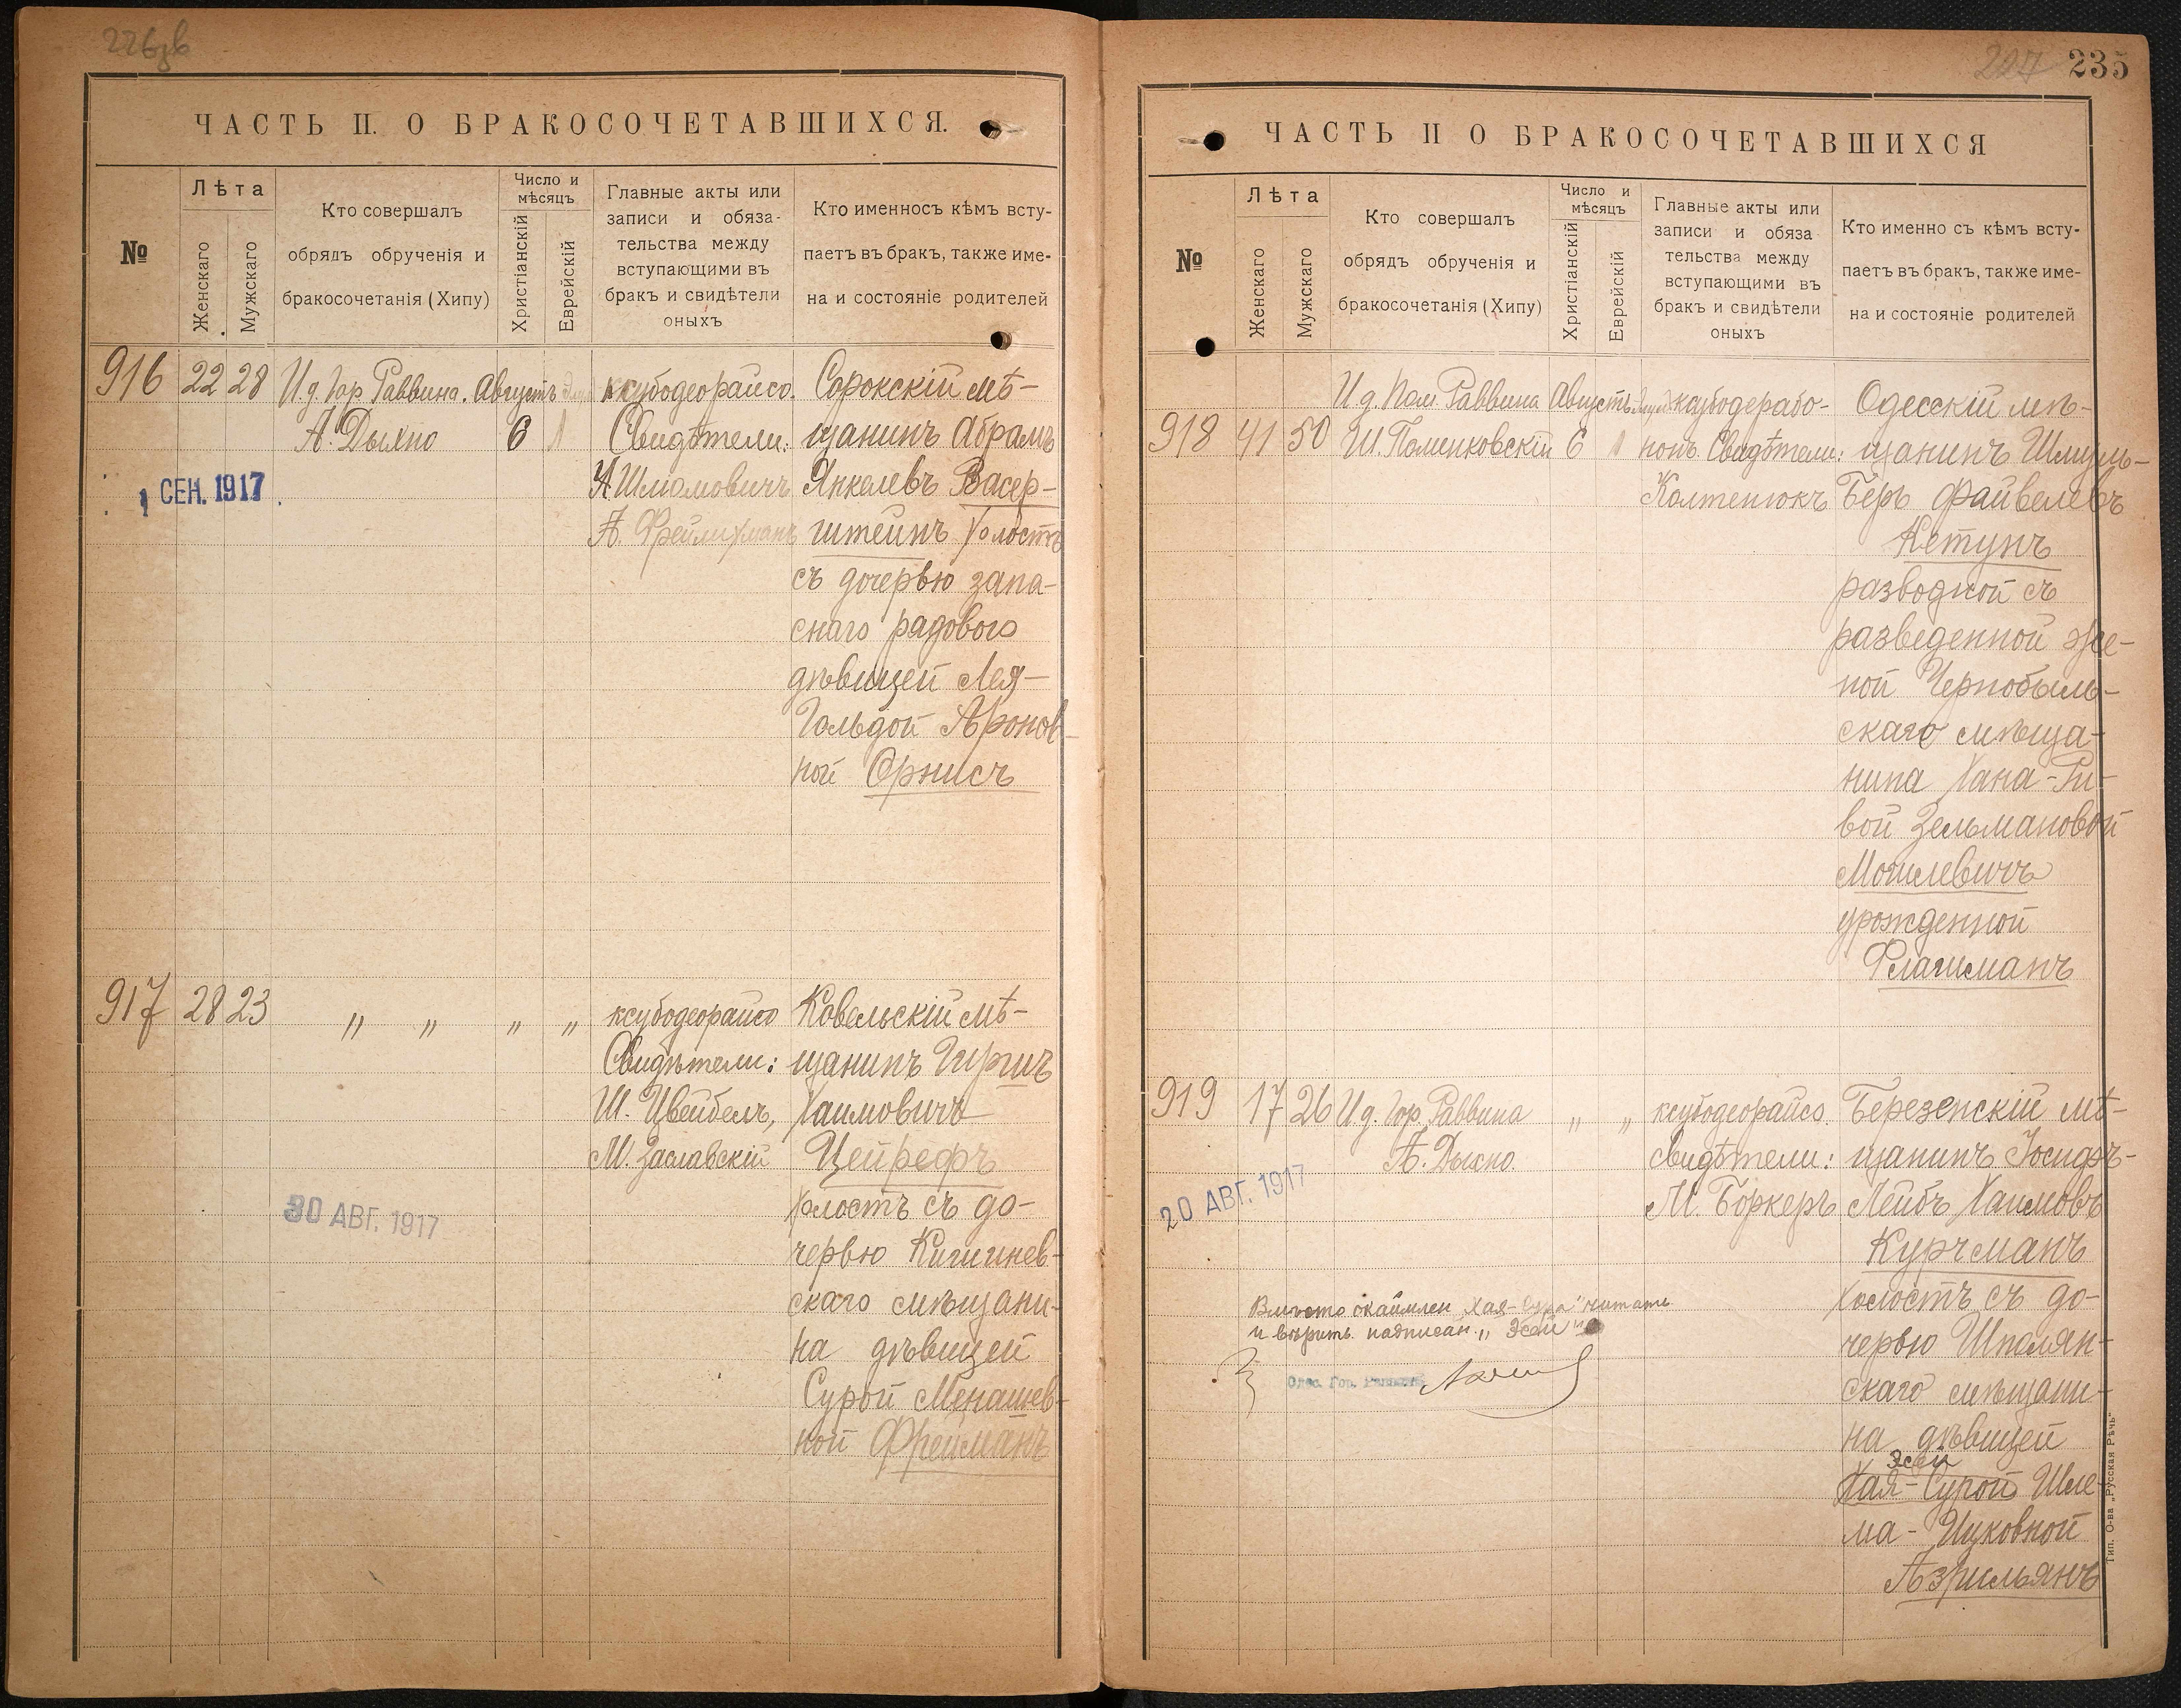 ЧАСТЬ II. О БРАКОСОЧЕТАВШИХСЯ.
№
Лѣта
Женскаго
Мужскаго
Кто совершалъ
обрядъ обрученія и
бракосочетанія (Хипу)
Число и
мѣсяцъ
Христіанскій
Еврейскій
Главные акты или
записи и обяза-
тельства между
вступающими въ
бракъ и свидѣтели
оныхъ
Кто именносъ кѣмъ всту-
паетъ въ бракъ, также име-
на и состояніе родителей
916
22
28
И.д. Гор Раввина.
А. Дыхно
Августъ
6
1 СЕН. 1917
ксубодеорайсо.
Свидѣтели:
А Шломовичъ
А. Фрейлихманъ
Сорокскій мѣ-
щанинъ Абрамъ
Янкелевъ Васер-
штейнъ холостъ
съ дочерью запа-
снаго радового
дѣвицей Лея-
Гольдой Аронов-
ной Орнисъ
917
28
23
" "
"
"
30 АВГ. 1917
ксубодеорайсо
Свидѣтели:
Ш. Цвейбелъ,
М. Заславскій
Ковельскій мѣ-
щанинъ Гиршъ
Хаимовичъ
Цейрефъ
холостъ съ до-
черью Кишинев-
скаго мѣщани-
на дѣвицей
Сурой Менашев-
ной Фрейманъ
235
ЧАСТЬ II О БРАКОСОЧЕТАВШИХСЯ
№
Лѣта
Женскаго
Мужскаго
Кто совершалъ
обрядъ обрученія и
бракосочетанія (Хипу)
Число и
мѣсяцъ
Христіанскій
Еврейскій
Главные акты или
записи и обяза
тельства между
вступающими въ
бракъ и свидѣтели
оныхъ
Кто именно съ кѣмъ всту-
паетъ въ бракъ, также име-
на и состояніе родителей
918
41
50
И д. Пом Раввина
Ш. Поменковскій
Августъ
6
ксубодерабо-
нонъ Свидѣтели:
Колтенюкъ
Одесскій мѣ-
щанинъ Шмуль-
Беръ Файвелевъ
Кетунъ
разводной съ
разведенной же-
ной Чернобыль-
скаго мѣща-
нина Хана-Ри-
вой Зельмановой
Могилевичъ
урожденной
Флагиманъ
919
17
26
И д. Гор. Раввина
А. Дыхно.
"
"
20 АВГ. 1917
ксубодеорайсо.
Свидѣтели:
М. Боркеръ
Березенскій мѣ-
щанинъ Іосифъ-
Лейбъ Хаимовъ
Курчманъ
холостъ съ до-
черью Шполян-
скаго мѣщани-
на дѣвицей
Эсѳи
Хая-Сурой Шле-
ма-Ицковной
Азрильянъ
Вмѣсто окаймлен. "Хая-Сура" читать
и вѣрить надписан.
Одес. Гор. Раввинъ
Тип. О-ва „Русская Рѣчь"